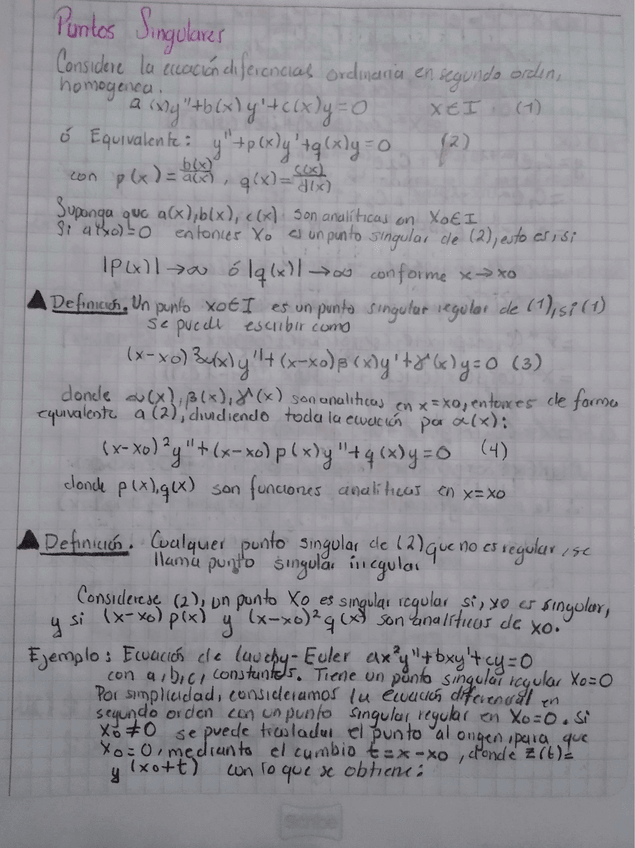 Puntos Singulares
Considere la ecuación diferencial ordinaria en segundo orden,
homogenea.
a(x)y''+b(x)y'+c(x)y=0 x∈I (1)
ó Equivalente: y''+p(x)y'+q(x)y=0 (2)
con p(x)=b(x)/a(x), q(x)=c(x)/a(x)
Suponga que a(x),b(x),c(x) son analíticas en x0∈I
Si a(x0)=0 entonces x0 es un punto singular de (2), esto es, si
|P(x)|→∞ ó |q(x)|→∞ conforme x→x0
▲ Definición. Un punto x0∈I es un punto singular regular de (1), si (1)
se puede escribir como
(x-x0)²α(x)y''+(x-x0)β(x)y'+γ(x)y=0 (3)
donde α(x),β(x),γ(x) son analíticas en x=x0, entonces de forma
equivalente a (2), dividiendo toda la ecuación por α(x):
(x-x0)²y''+(x-x0)p(x)y''+q(x)y=0 (4)
donde p(x),q(x) son funciones analíticas en x=x0
▲ Definición. Cualquer punto singular de (2) que no es regular, se
llama punto singular irregular
Considerese (2), un punto x0 es singular regular si, x0 es singular,
y si (x-x0)p(x) y (x-x0)²q(x) son analíticas de x0.
Ejemplo: Ecuación de Cauchy-Euler ax²y''+bxy'+cy=0
con a,b,c, constantes. Tiene un punto singular regular x0=0
Por simplicidad, consideramos la ecuación diferencial en
segundo orden con un punto singular regular en x0=0. si
x0≠0 se puede trasladar el punto al origen, para que
x0=0, mediante el cambio t=x-x0, donde z(t)=
y(x0+t) con lo que se obtiene: